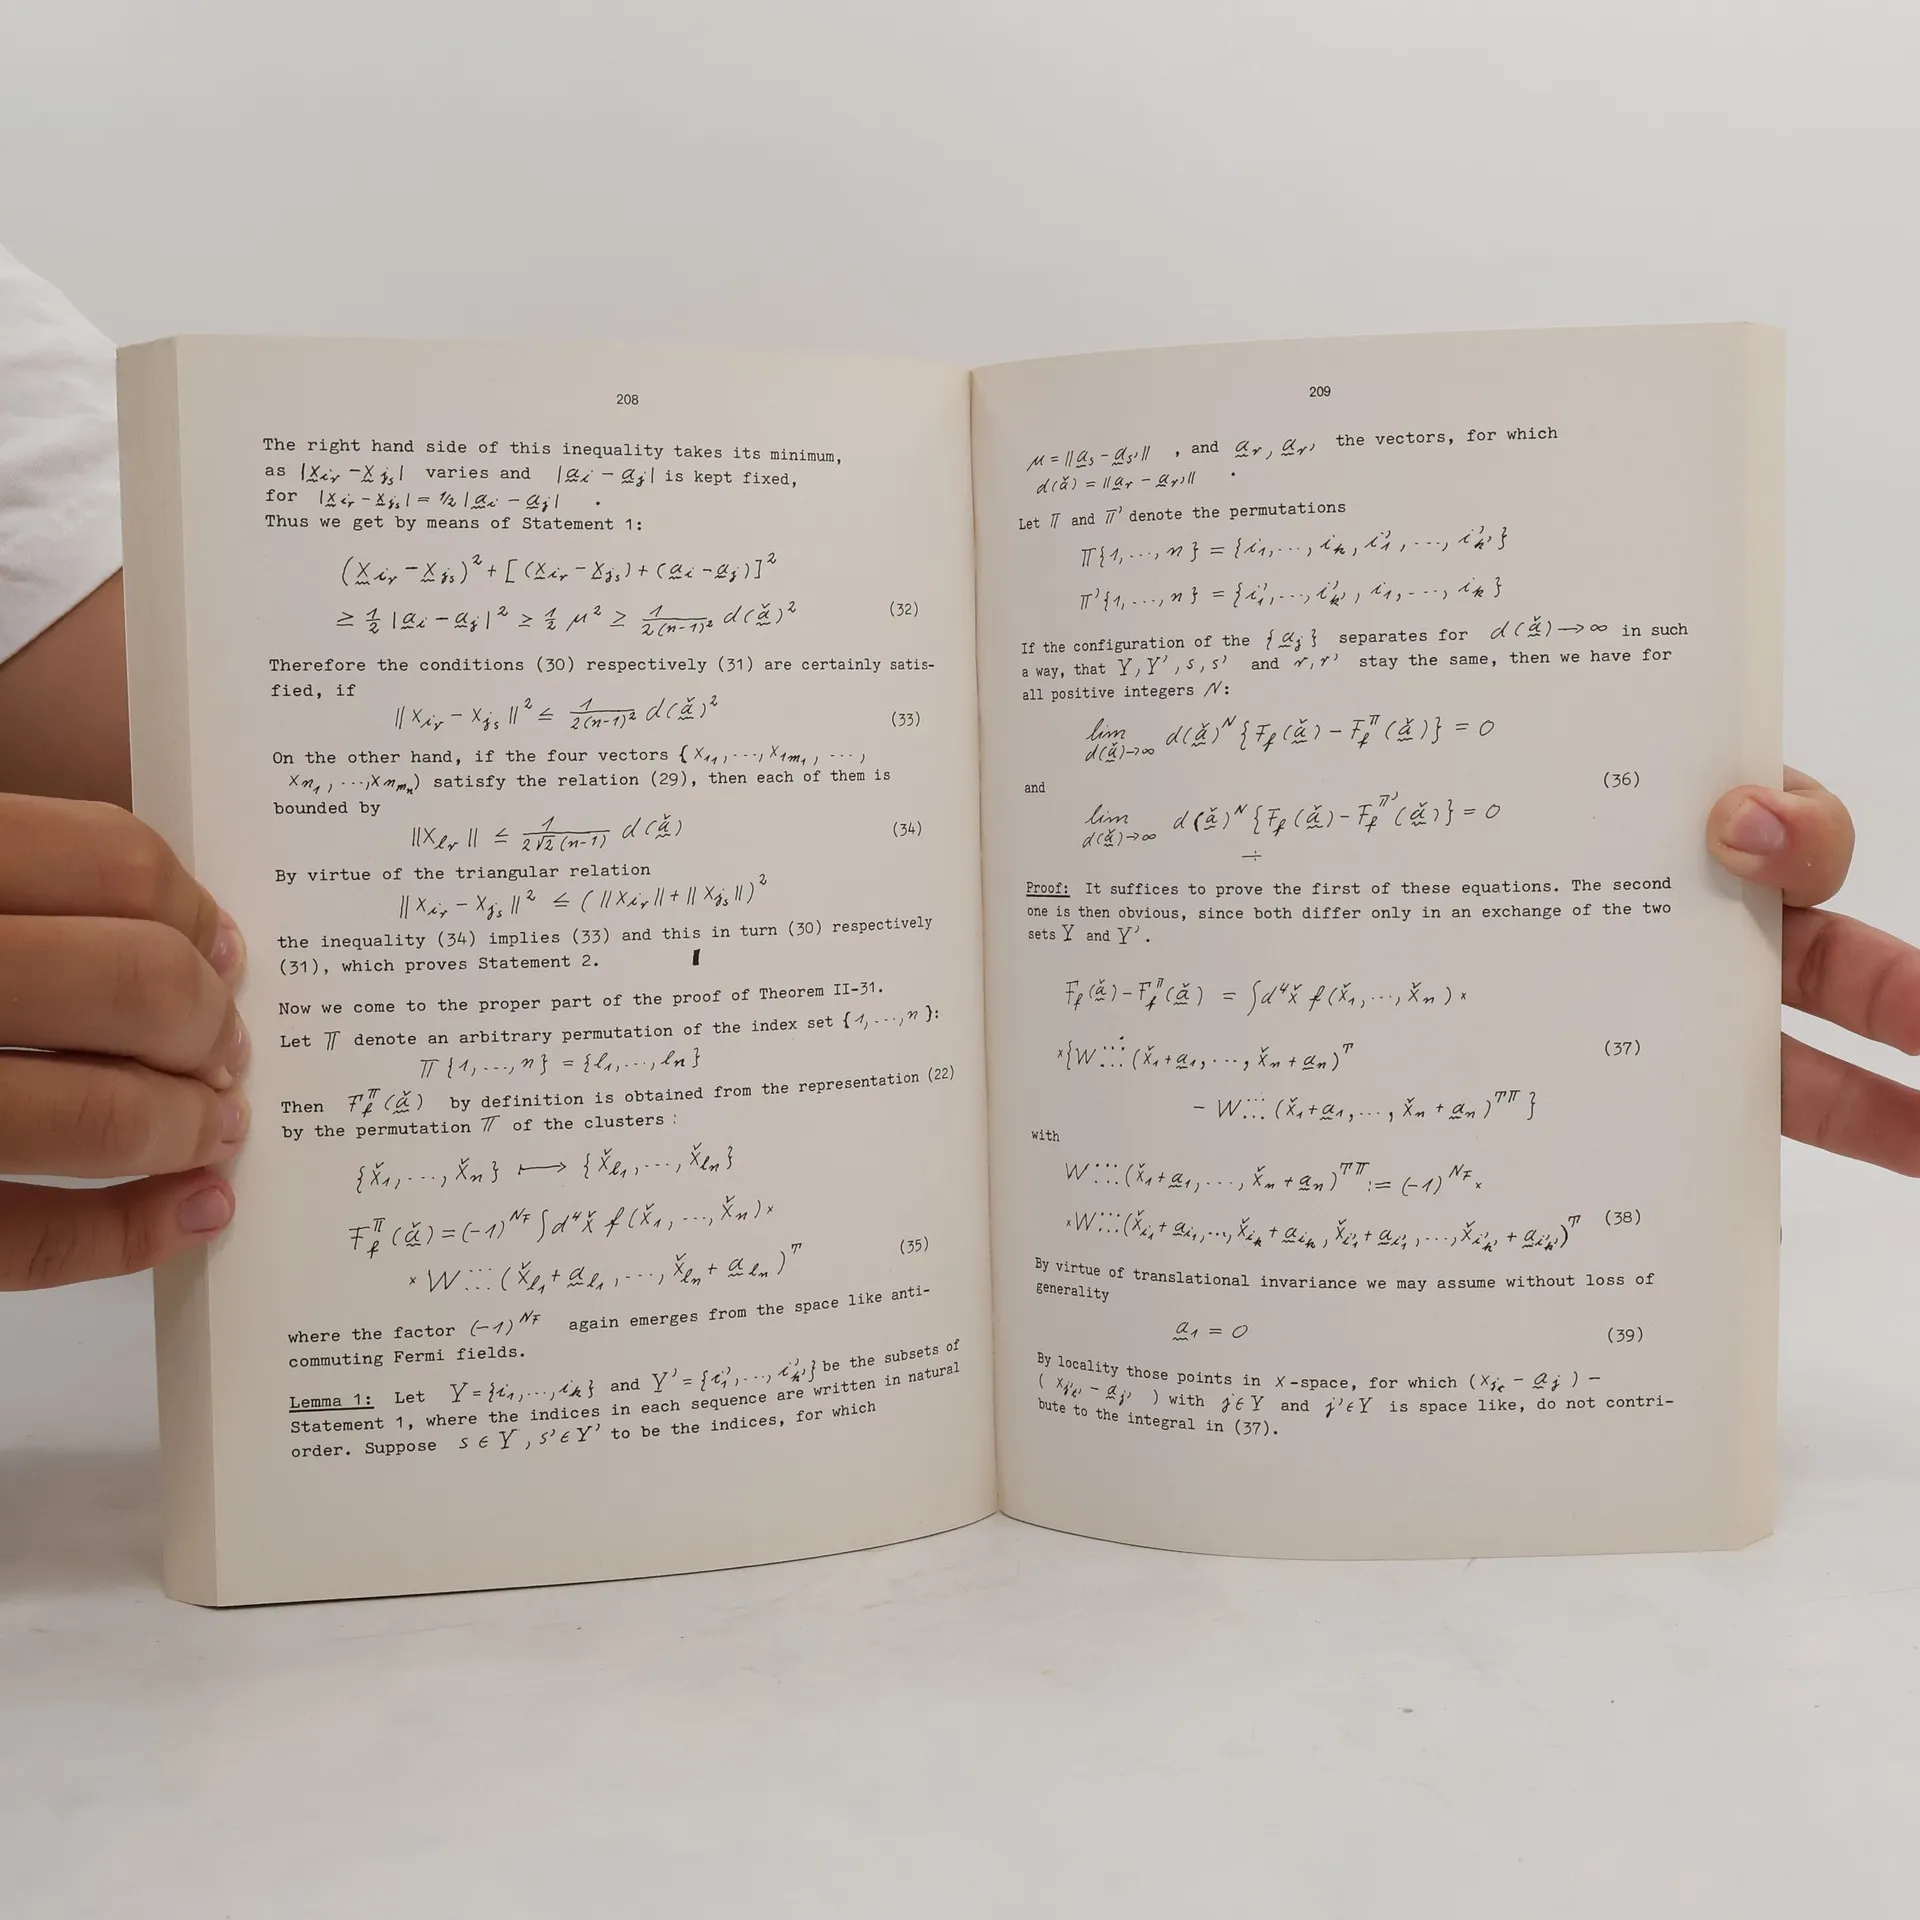 208
The right hand side of this inequality takes its minimum,
as |x̰_ir − x̰_js| varies and |a̰_i − a̰_j| is kept fixed,
for |x̰_ir − x̰_js| = 1/2 |a̰_i − a̰_j| .
Thus we get by means of Statement 1:
(x̰_ir − x̰_js)² + [(x̰_ir − x̰_js) + (a̰_i − a̰_j)]²
≥ 1/2 |a̰_i − a̰_j|² ≥ 1/2 μ² ≥ 1/(2(n−1)²) d(ǎ̰)² (32)
Therefore the conditions (30) respectively (31) are certainly satis-
fied, if
‖x_ir − x_js‖² ≤ 1/(2(n−1)²) d(ǎ̰)² (33)
On the other hand, if the four vectors {x_11, ..., x_1m_1, ...,
x_n1, ..., x_nm_n) satisfy the relation (29), then each of them is
bounded by
‖x_lr‖ ≤ 1/(2√2(n−1)) d(ǎ̰) (34)
By virtue of the triangular relation
‖x_ir − x_js‖² ≤ (‖x_ir‖ + ‖x_js‖)²
the inequality (34) implies (33) and this in turn (30) respectively
(31), which proves Statement 2.
Now we come to the proper part of the proof of Theorem II-31.
Let π denote an arbitrary permutation of the index set {1, ..., n}:
π{1, ..., n} = {l_1, ..., l_n}
Then F_f^π(ǎ̰) by definition is obtained from the representation (22)
by the permutation π of the clusters:
{x̌_1, ..., x̌_n} ⟼ {x̌_l1, ..., x̌_ln}
F_f^π(ǎ̰) = (−1)^N_F ∫d⁴x̌ f(x̌_1, ..., x̌_n) ×
× W⋮⋮⋮(x̌_l1 + a̰_l1, ..., x̌_ln + a̰_ln)^T (35)
where the factor (−1)^N_F again emerges from the space like anti-
commuting Fermi fields.
Lemma 1: Let Y = {i_1, ..., i_k} and Y' = {i'_1, ..., i'_k'} be the subsets of
Statement 1, where the indices in each sequence are written in natural
order. Suppose s ∈ Y, s' ∈ Y' to be the indices, for which
209
μ = ‖a̰_s − a̰_s'‖ , and a̰_r, a̰_r' the vectors, for which
d(ǎ) = ‖a̰_r − a̰_r'‖ .
Let π and π' denote the permutations
π{1, ..., n} = {i_1, ..., i_k, i'_1, ..., i'_k'}
π'{1, ..., n} = {i'_1, ..., i'_k', i_1, ..., i_k}
If the configuration of the {a̰_j} separates for d(ǎ̰) → ∞ in such
a way, that Y, Y', s, s' and r, r' stay the same, then we have for
all positive integers N:
lim_{d(ǎ̰)→∞} d(ǎ̰)^N {F_f(ǎ̰) − F_f^π(ǎ̰)} = 0
and (36)
lim_{d(ǎ̰)→∞} d(ǎ̰)^N {F_f(ǎ̰) − F_f^π'(ǎ̰)} = 0
÷
Proof: It suffices to prove the first of these equations. The second
one is then obvious, since both differ only in an exchange of the two
sets Y and Y'.
F_f(ǎ̰) − F_f^π(ǎ̰) = ∫d⁴x̌ f(x̌_1, ..., x̌_n) ×
×{W⋮⋮⋮(x̌_1 + a̰_1, ..., x̌_n + a̰_n)^T (37)
− W⋮⋮⋮(x̌_1 + a̰_1, ..., x̌_n + a̰_n)^Tπ}
with
W⋮⋮⋮(x̌_1 + a̰_1, ..., x̌_n + a̰_n)^Tπ := (−1)^N_F ×
×W⋮⋮⋮(x̌_i1 + a̰_i1, ..., x̌_ik + a̰_ik, x̌_i'1 + a̰_i'1, ..., x̌_i'k' + a̰_i'k')^T (38)
By virtue of translational invariance we may assume without loss of
generality
a̰_1 = 0 (39)
By locality those points in x-space, for which (x_jt − a̰_j) −
(x_j't' − a̰_j') with j ∈ Y and j' ∈ Y is space like, do not contri-
bute to the integral in (37).